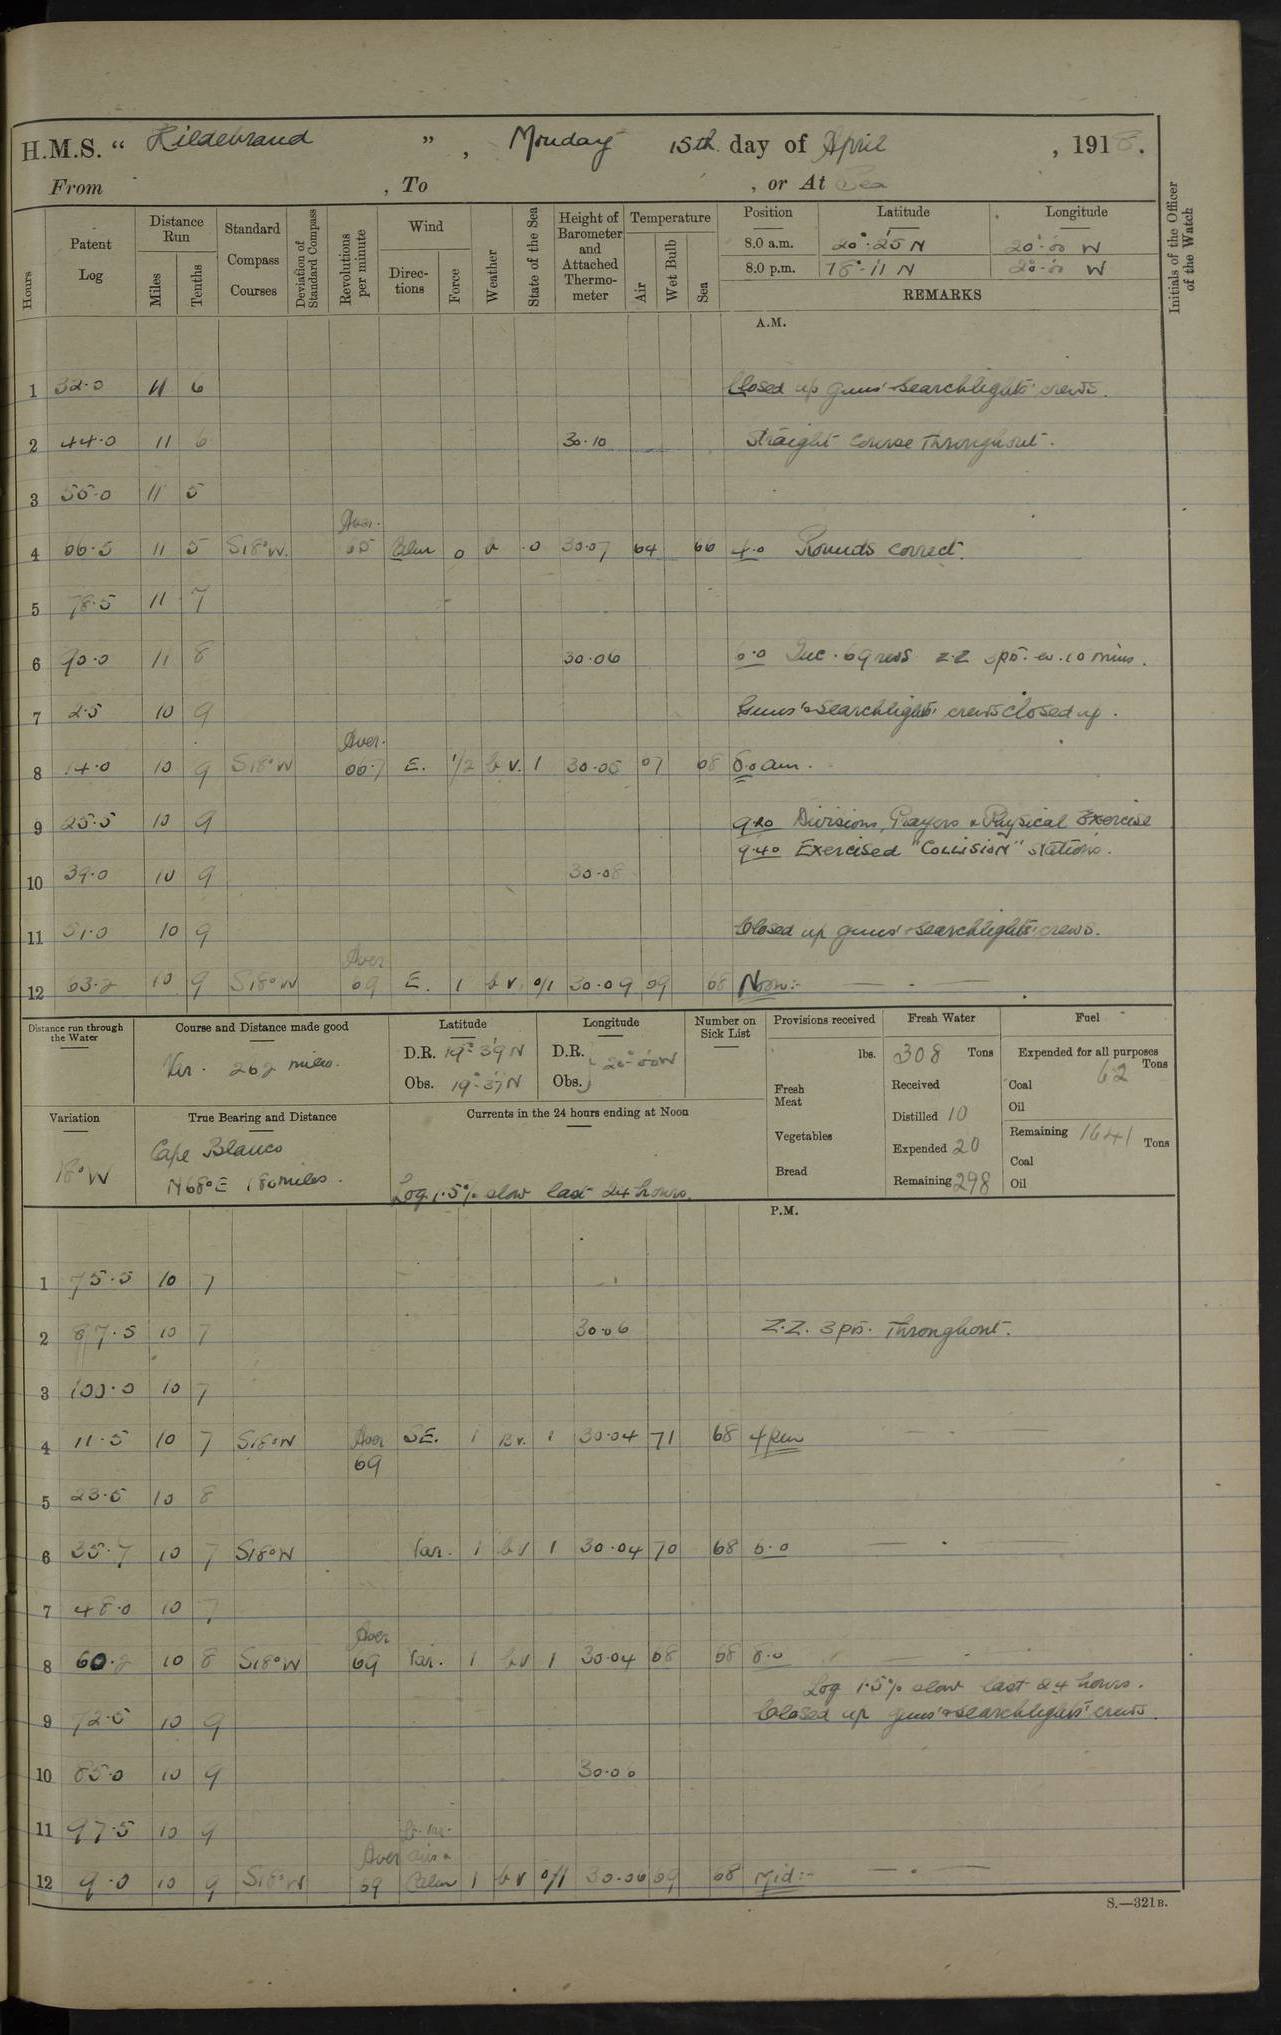 H.M.S. “ Hildebrand ” , Monday 15th day of April , 1918.
From , To , or At Sea
Hours
Patent Log
Distance Run
Miles
Tenths
Standard Compass Courses
Deviation of Standard Compass
Revolutions per minute
Wind
Direc-tions
Force
Weather
State of the Sea
Height of Barometer and Attached Thermo-meter
Temperature
Air
Wet Bulb
Sea
Position Latitude Longitude
8.0 a.m. 20°·25 N 20°·00 W
8.0 p.m. 18°·11 N 20°·00 W
REMARKS
Initials of the Officer of the Watch
A.M.
1 32·0 11 6 Closed up guns' & searchlights' crews.
2 44·0 11 6 30·10 Straight course throughout.
3 55·0 11 5
Aver.
4 66·5 11 5 S18°W. 65 Calm 0 b 0 30·07 64 66 4·0 Rounds correct.
5 78·5 11 7
6 90·0 11 8 30·06 6·0 Inc. 69 revs Z.Z 3 pts. ev. 10 mins.
7 2·5 10 9 Guns' & searchlights' crews closed up.
Aver.
8 14·0 10 9 S18°W 66·7 E. 1/2 b v. 1 30·05 67 68 8.0 am.
9 25·5 10 9 9.20 Divisions, Prayers & Physical Exercise
9.40 Exercised "COLLISION" stations.
10 39·0 10 9 30·08
11 51·0 10 9 Closed up guns' & searchlights' crews.
Aver
12 63·2 10 9 S18°W 69 E. 1 b v. 0/1 30·09 69 68 Noon:-
Distance run through the Water
Course and Distance made good
Var. 262 miles.
Latitude
D.R. 19°·39 N
Obs. 19°·37 N
Longitude
D.R. } 20°·00 W
Obs. }
Number on Sick List
Provisions received
lbs.
Fresh Meat
Vegetables
Bread
Fresh Water
308 Tons
Received
Distilled 10
Expended 20
Remaining 298
Fuel
Expended for all purposes
62 Tons
Coal
Oil
Remaining 1641 Tons
Coal
Oil
Variation
18°W
True Bearing and Distance
Cape Blanco
N68°E 180 miles.
Currents in the 24 hours ending at Noon
Log 1·5% slow last 24 hours.
P.M.
1 75·5 10 7
2 87·5 10 7 30·06 Z.Z. 3 pts. Throughout.
3 100·0 10 7
4 11·5 10 7 S18°W Aver SE. 1 Bv. 1 30·04 71 68 4 pm
69
5 23·5 10 8
6 35·7 10 7 S18°W Var. 1 b v 1 30·04 70 68 6·0
7 48·0 10 7
Aver
8 60·2 10 8 S18°W 69 Var. 1 b v 1 30·04 68 68 8·0
Log 1·5% slow last 24 hours.
9 72·5 10 9 Closed up guns' & searchlights' crews.
10 85·0 10 9 30·06
11 97·5 10 9
Aver airs &
12 9·0 10 9 S18°W 69 Calm 1 b v 0/1 30·06 69 68 Mid:-
S.—321B.